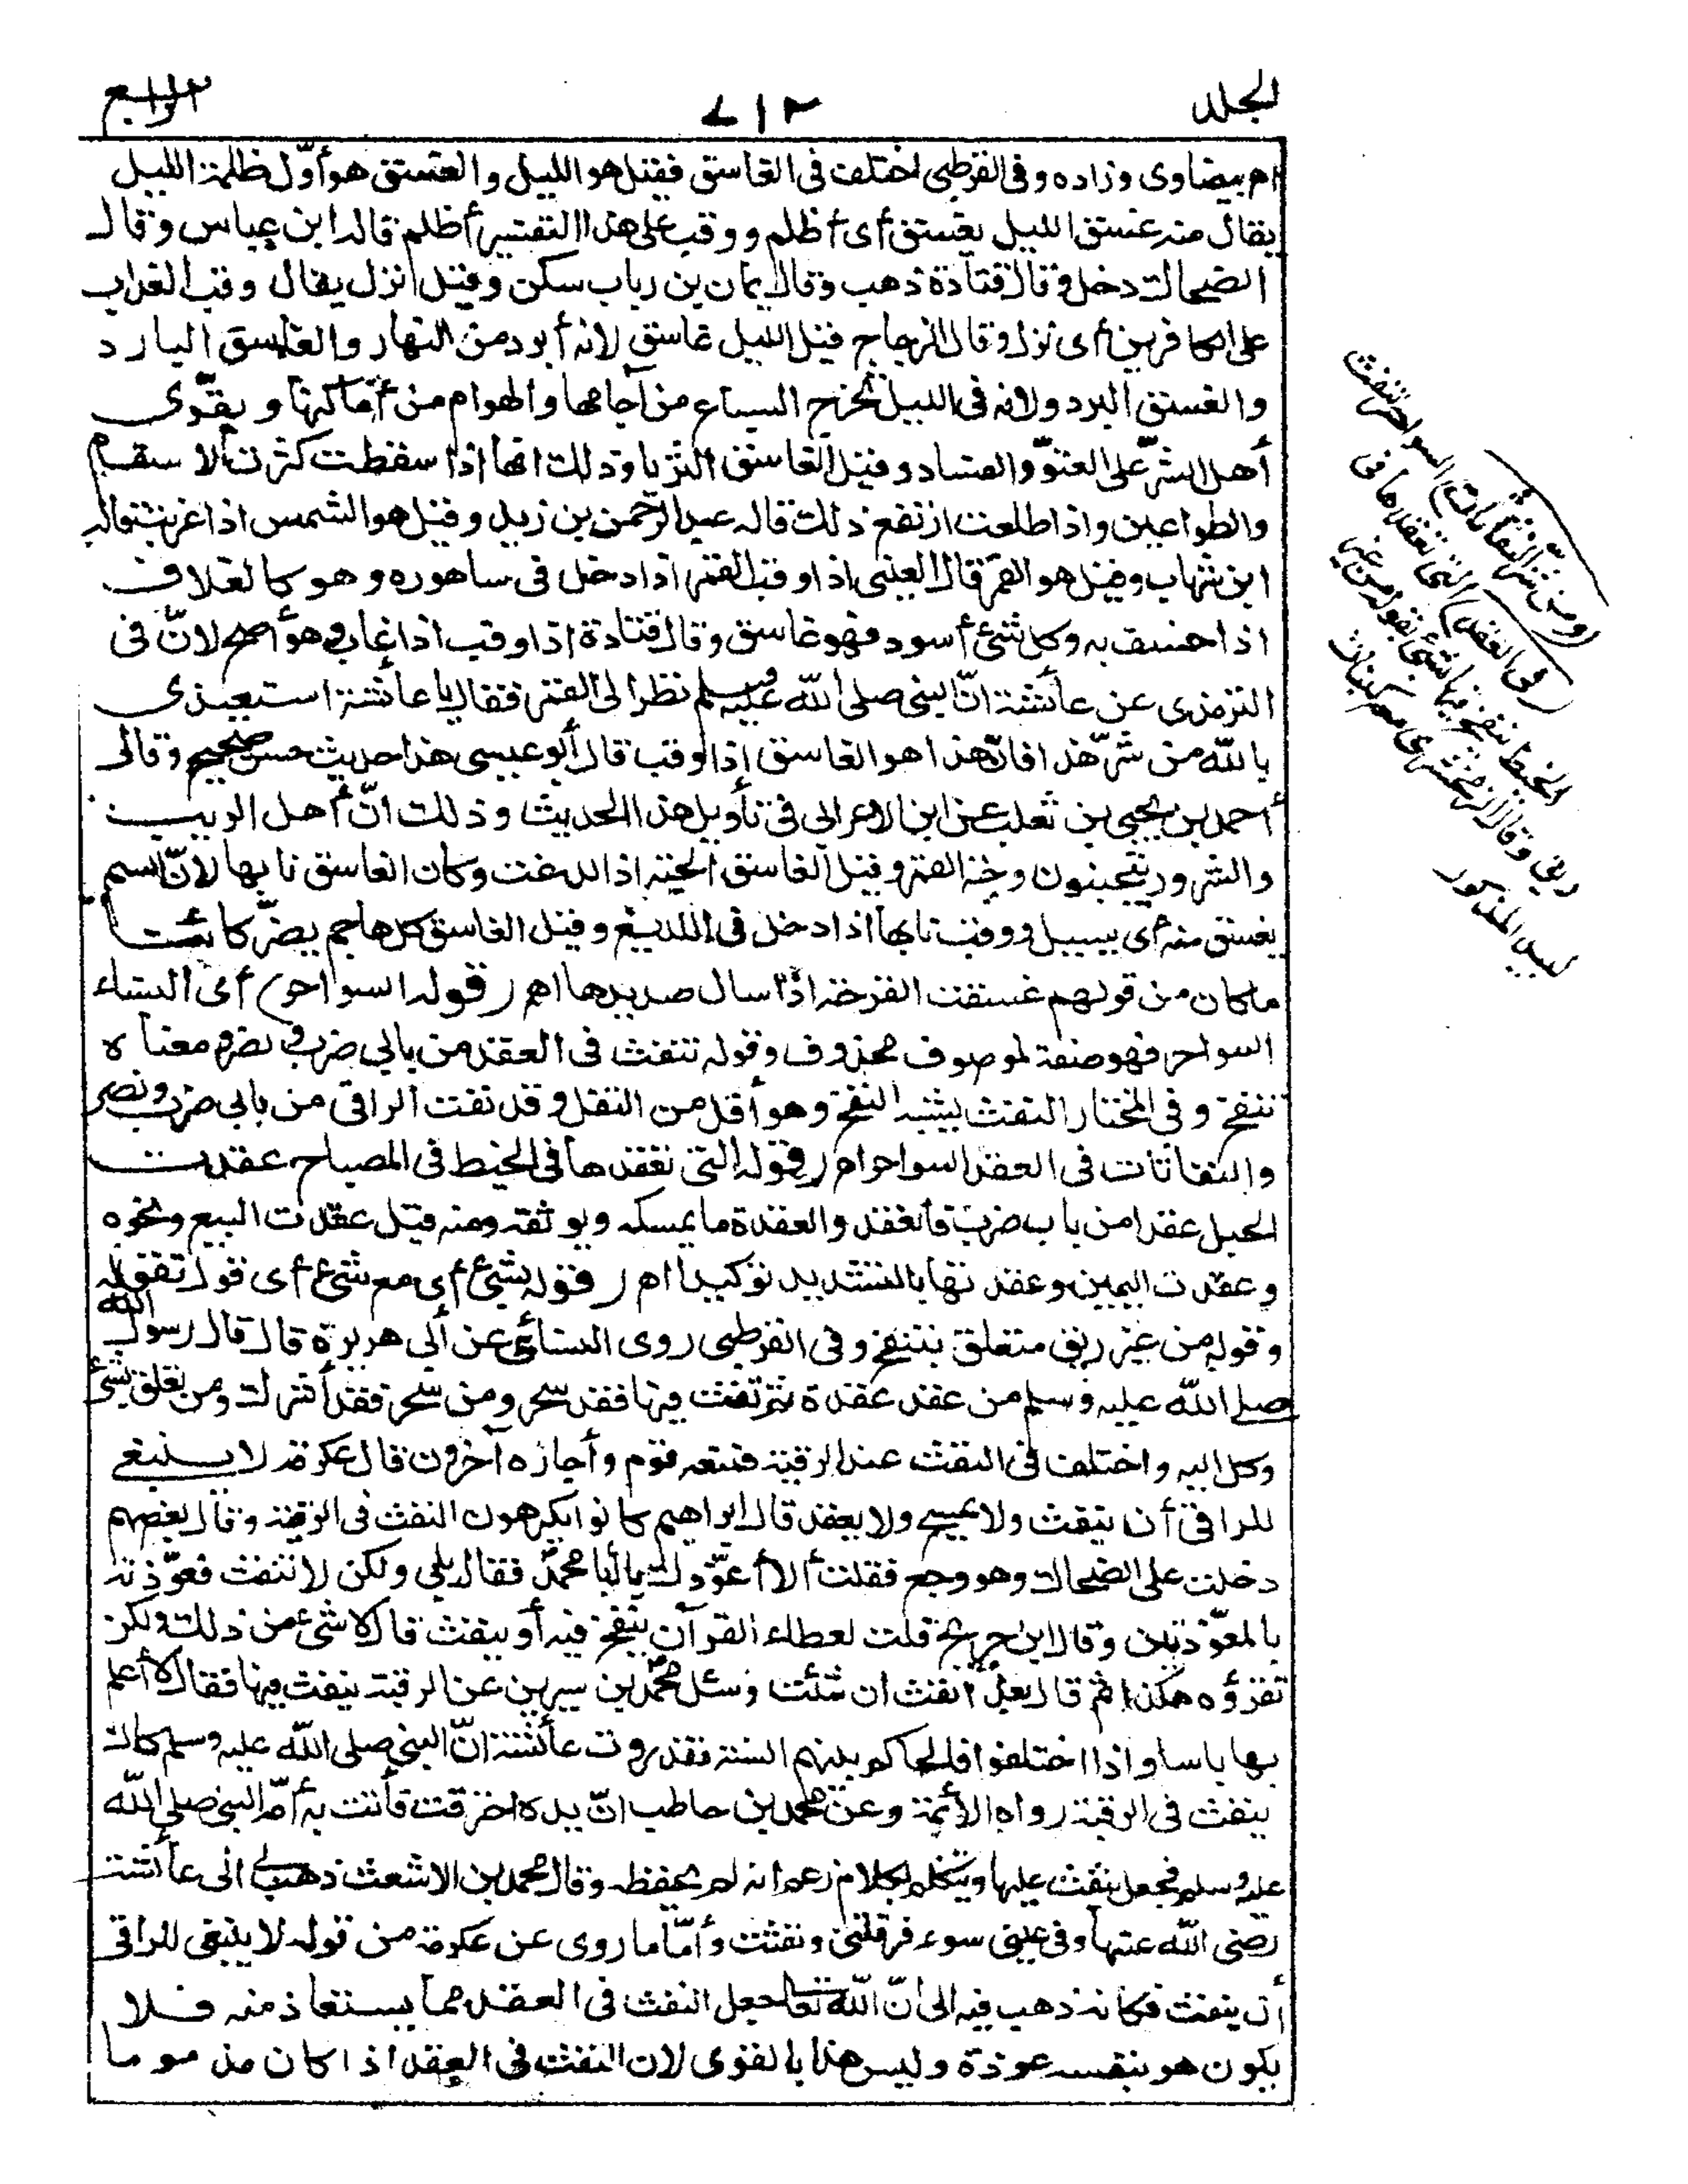 الجلد
٧١٢
الرابع
اه بيضاوى وزاده وفى القرطبى اختلف فى الغاسق فقيل هو الليل والغسق هو أوّل ظلمة الليل
يقال منه غسق الليل يغسق أى أظلم ووقب على هذا التفسير أظلم قاله ابن عباس وقال
الضحاك دخل وقال قتادة ذهب وقال يمان بن رباب سكن وقيل نزل يقال وقب العذاب
على الكافرين أى نزل وقال الزجاج قيل لليل غاسق لانه أبرد من النهار والغاسق البارد
والغسق البرد ولانه فى الليل تخرج السباع من آجامها والهوام من أماكنها ويقوّى
أهل الشرّ على العتوّ والفساد وقيل الغاسق الثريا وذلك انها اذا سقطت كثرت الاسقام
والطواعين واذا طلعت ارتفع ذلك قاله عبد الرّحمن بن زيد وقيل هو الشمس اذا غربت قاله
ابن شهاب وقيل هو القمر قال القتبى اذا وقب القمر اذا دخل فى ساهوره وهو كالغلاف
اذا خسف به وكل شئ أسود فهو غاسق وقال قتادة اذا وقب اذا غاب وهو أصح لانّ فى
الترمذى عن عائشة انّ النبى صلى الله عليه وسلم نظر الى القمر فقال يا عائشة استعيذى
بالله من شرّ هذا فانّ هذا هو الغاسق إذا وقب قال أبو عيسى هذا حديث حسن صحيح وقال
أحمد بن يحيى بن ثعلب عن ابن الاعرابى فى تأويل هذا الحديث وذلك انّ أهل الريب
والشرور يتحينون وجبة القمر وقيل الغاسق الحية اذا لدغت وكان الغاسق نابها لانّ السم
يغسق منه أى يسيل ووقب نابها اذا دخل فى اللديغ وقيل الغاسق كل هاجم يضرّ كائنا
ما كان من قولهم غسقت القرحة اذا سال صديدها اه (قوله السواحر) أى النساء
السواحر فهو صفة لموصوف محذوف وقوله تنفث فى العقد من بابى ضرب ونصر ومعناه
تنفخ وفى المختار النفث يشبه النفخ وهو أقل من التفل وقد نفث الراقى من بابى ضرب ونصر
والنفاثات فى العقد السواحر اه (قوله التى تعقدها فى الخيط فى المصباح عقدت
الحبل عقدا من باب ضرب فانعقد والعقدة ما يمسكه ويوثقه ومنه قيل عقدت البيع ونحوه
وعقدت اليمين وعقدتها بالتشديد توكيدا اه (قوله بشئ أى مع شئ أى قول تقوله
وقوله من غير ريق متعلق بتنفخ وفى القرطبى روى النسائى عن أبى هريرة قال قال رسول الله
صلى الله عليه وسلم من عقد عقدة ثم نفث فيها فقد سحر ومن سحر فقد أشرك ومن تعلق بشئ
وكل اليه واختلف فى النفث عند الرقية فمنعه قوم وأجازه آخرون قال عكرمة لا ينبغى
للراقى أن ينفث ولا يمسح ولا يعقد قال ابراهيم كانوا يكرهون النفث فى الرقية وقال بعضهم
دخلت على الضحاك وهو وجع فقلت ألا أعوّذك يا أبا محمد فقال بلى ولكن لا تنفث فعوّذته
بالمعوّذتين وقال ابن جريج قلت لعطاء القرآن ينفخ فيه أو ينفث قال لا شئ من ذلك ولكن
تقرؤه هكذا ثم قال بعد انفث ان شئت وسئل محمد بن سيرين عن الرقية ينفث فيها فقال لا أعلم
بها باسا واذا اختلفوا فالحاكم بينهم السنة فقد روت عائشة انّ النبى صلى الله عليه وسلم كان
ينفث فى الرقية رواه الأئمة وعن محمد بن حاطب انّ يده احترقت فأتت به أمّه النبى صلى الله
عليه وسلم فجعل ينفث عليها ويتكلم بكلام زعم انه لم يحفظه وقال محمد بن الاشعث ذهب بى الى عائشة
رضى الله عنها وفى عينى سوء فرقتنى ونفثت وأمّا ما روى عن عكرمة من قوله لا ينبغى للراقى
أن ينفث فكانه ذهب فيه الى انّ الله تعالى جعل النفث فى العقد مما يستعاذ منه فلا
يكون هو بنفسه عوذة وليس هذا بالقوى لان النفث فى العقد اذا كان مذموما
(ومن شرّ النفاثات) السواحر تنفث
(فى العقد) التى تعقدها فى
الخيط تنفخ فيها بشئ تقوله من غير
ريق وقال الزمخشرى معه كبنات
لبيد المذكور